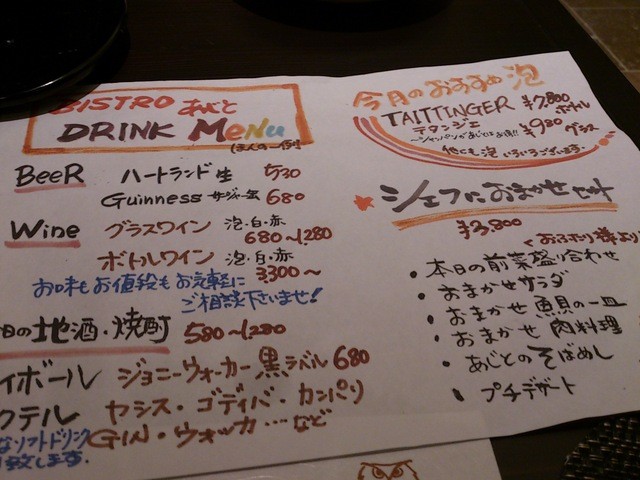 BISTRO あじと
DRINK MeNu
(ほんの一例!)
BeeR ハートランド生 730
Guinness サージャー缶 680
Wine グラスワイン 泡・白・赤
680~1280
ボトルワイン 泡・白・赤
3300~
お味もお値段もお気軽に
ご相談下さいませ!
日の地酒・焼酎 580~1280
イボール ジョニーウォーカー黒ラベル 680
クテル カシス・ゴディバ・カンパリ
GIN・ウォッカ…など
なソフトドリンク
致します。
今月のおすすめ泡
TAITTINGER ¥7,800 ボトル
テタンジェ ¥980 グラス
~シャンパンがあじとではお得!!
他にも泡いろいろございます。
シェフにおまかせセット
¥3,800
<お二人様より
・本日の前菜盛り合わせ
・おまかせサラダ
・おまかせ 魚貝の一皿
・おまかせ 肉料理
・あじとのそばめし
・プチデザート